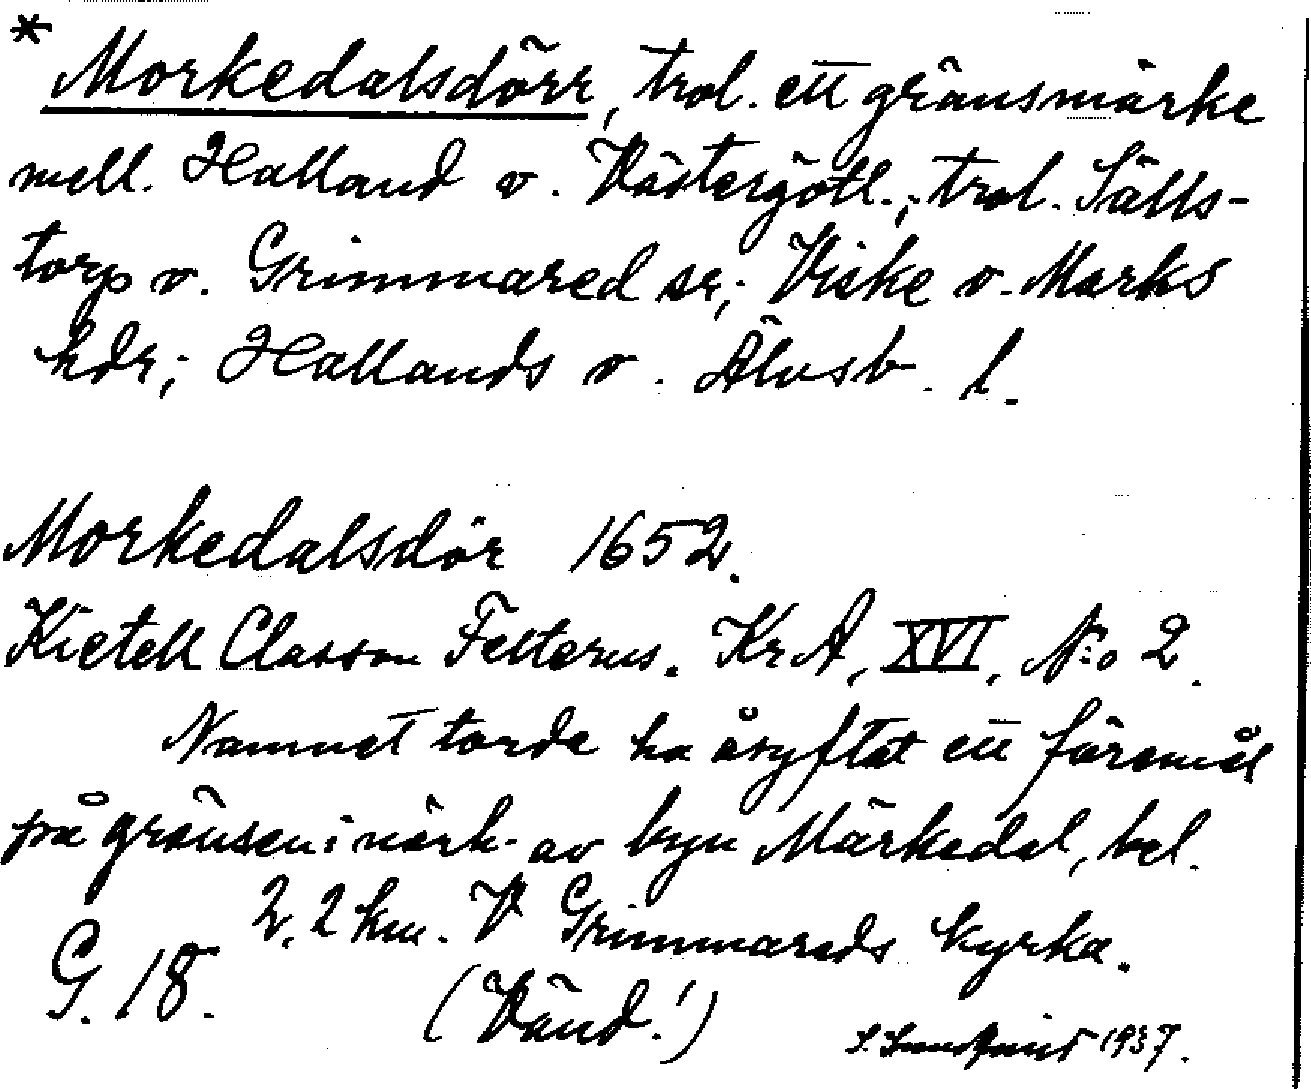 * Morkedalsdörr, trol. ett gränsmärke
mell. Halland o. Västergötl.; trol. Sälls-
torp o. Grimmared sr; Viske o. Marks
hdr; Hallands o. Älvsb. l.
Morkedalsdör 1652.
Kietell Classon Felterus. KrA, XVI, N:o 2.
Namnet torde ha åsyftat ett föremål
på gränsen i närh. av byn Märkedal, bel.
2,2 km. V Grimmareds kyrka.
G. 18.
(Vänd!)
S. Sundqvist 1937.